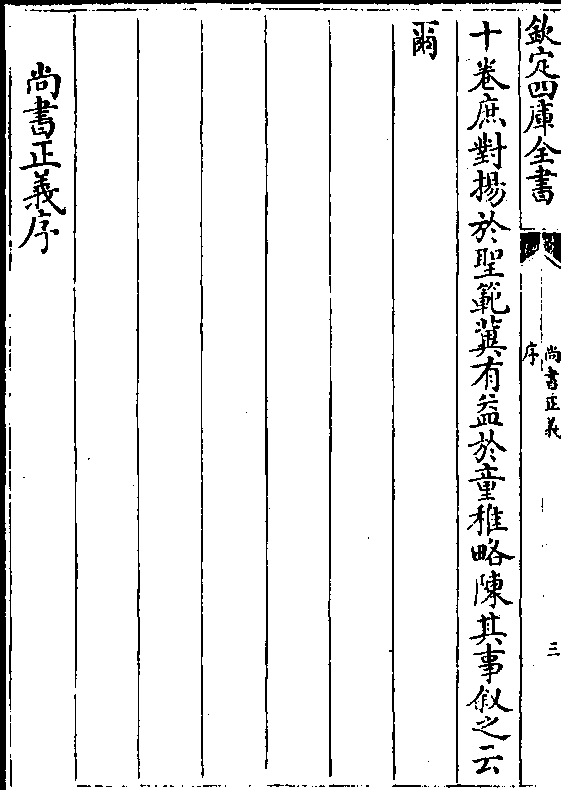 欽定四庫全書
尚書正義
序
三
十卷庶對揚於聖範冀有益於童稚略陳其事叙之云
爾
尚書正義序